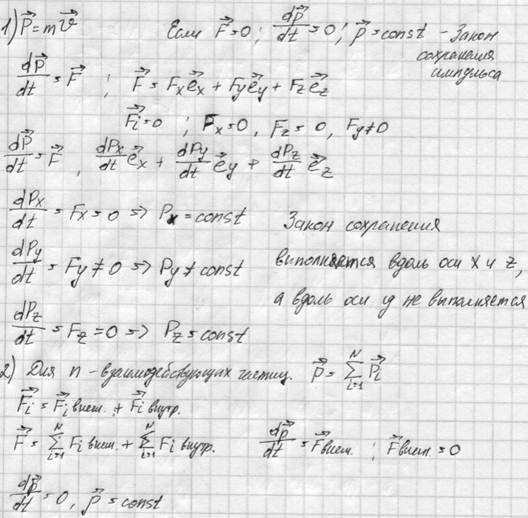 1) p⃗ = mv⃗ Если F⃗ = 0; dp⃗/dt = 0; p⃗ = const - Закон
сохранения
импульса
dp⃗/dt = F⃗ ; F⃗ = Fₓe⃗ₓ + Fye⃗y + Fze⃗z
F⃗i = 0 ; Fₓ = 0, Fz = 0, Fy ≠ 0
dp⃗/dt = F⃗, dPx/dt e⃗x + dPy/dt e⃗y + dPz/dt e⃗z
dPx/dt = Fx = 0 => Px = const
Закон сохранения
dPy/dt = Fy ≠ 0 => Py ≠ const
выполняется вдоль оси x и z,
а вдоль оси y не выполняется
dPz/dt = Fz = 0 => Pz = const
2) Для n - взаимодействующих частиц. p⃗ = ∑ᵢ₌₁ᴺ P⃗i
F⃗i = F⃗i внеш. + F⃗i внутр.
F⃗ = ∑ᵢ₌₁ᴺ Fi внеш. + ∑ᵢ₌₁ᴺ Fi внутр. dp⃗/dt = F⃗внеш. ; F⃗внеш. = 0
dp⃗/dt = 0, p⃗ = const